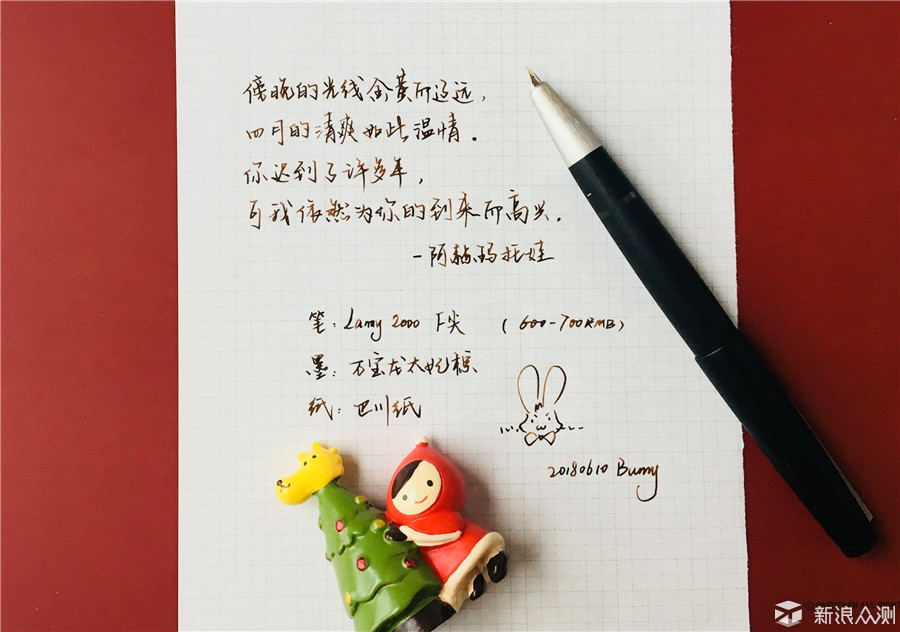 傍晚的光线金黄而辽远，
四月的清爽如此温情。
你迟到了许多年，
可我依然为你的到来而高兴。
-阿赫玛托娃
笔：Lamy 2000 F尖 （600-700RMB）
墨：万宝龙太妃棕
纸：巴川纸
20180610 Bunny
新浪众测